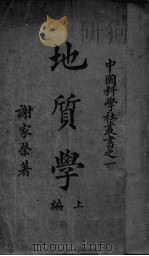 中國科學社叢書之一
地質學
上編
謝家榮著
www.toowiki.com